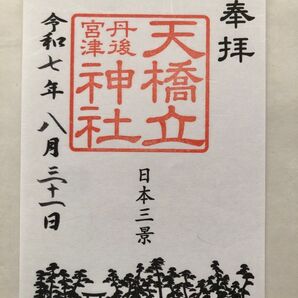 奉拝
天橋立
丹後
宮津
神社
日本三景
令和七年 八月三十一日